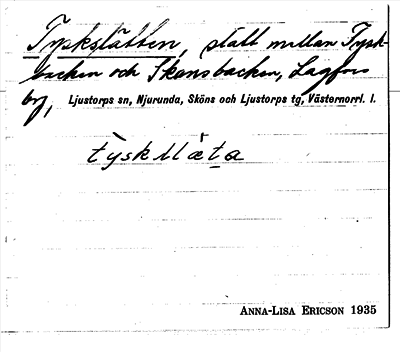 Tyskslätten, slätt mellan Tysk-
backen och Skansbacken, Lagfors
by, Ljustorps sn, Njurunda, Sköns och Ljustorps tg, Västernorrl. l.
ANNA-LISA ERICSON 1935